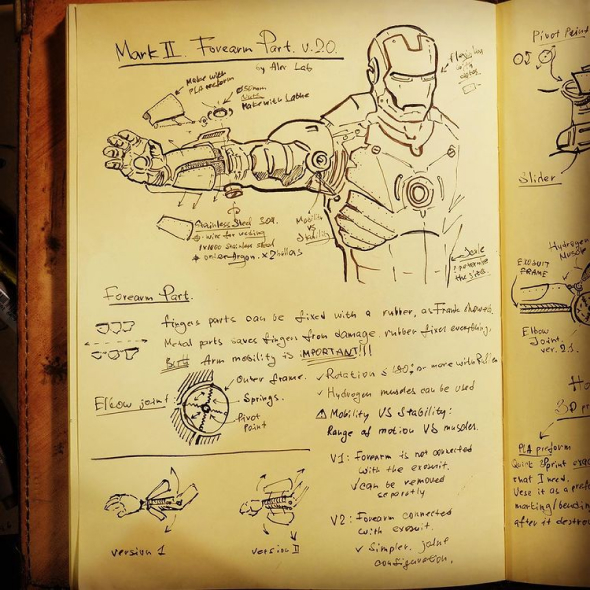 Mark II. Forearm Part. v.2.0.
by Alex Lab
Make with
PLA preform
Make with Lathe
Stainless Steel 302.
wire for welding
stainless steel
Mobility
VS
Stability
Scale
Forearm Part.
fingers parts can be fixed with a rubber, as Frank showed.
Metal parts saves fingers from damage. rubber fixes everything,
But Arm mobility is IMPORTANT!!!
Elbow joint.
Outer frame.
Springs.
Pivot
Point
✓ Rotation ≤ 180° or more with
✓ Hydrogen muscles can be used
⚠ Mobility VS Stability:
Range of motion VS muscles.
V1: Forearm is not connected
with the exosuit.
✓ can be removed
separatly
V2: Forearm connected
with exosuit.
✓ Simpler, joint
configuration.
version 1
version II
Pivot Point
Slider
Hydrogen
Muscle
EXOSUIT
FRAME
Elbow
Joint
ver. 2.1.
Ho
3D P
PLA preform
Quick 3Dprint exac
that I need.
Use it as a pref
marking/bending
after it destroy